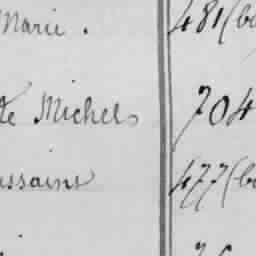 Marie. 481 (b
de Michels 704
ssaint 477 (b